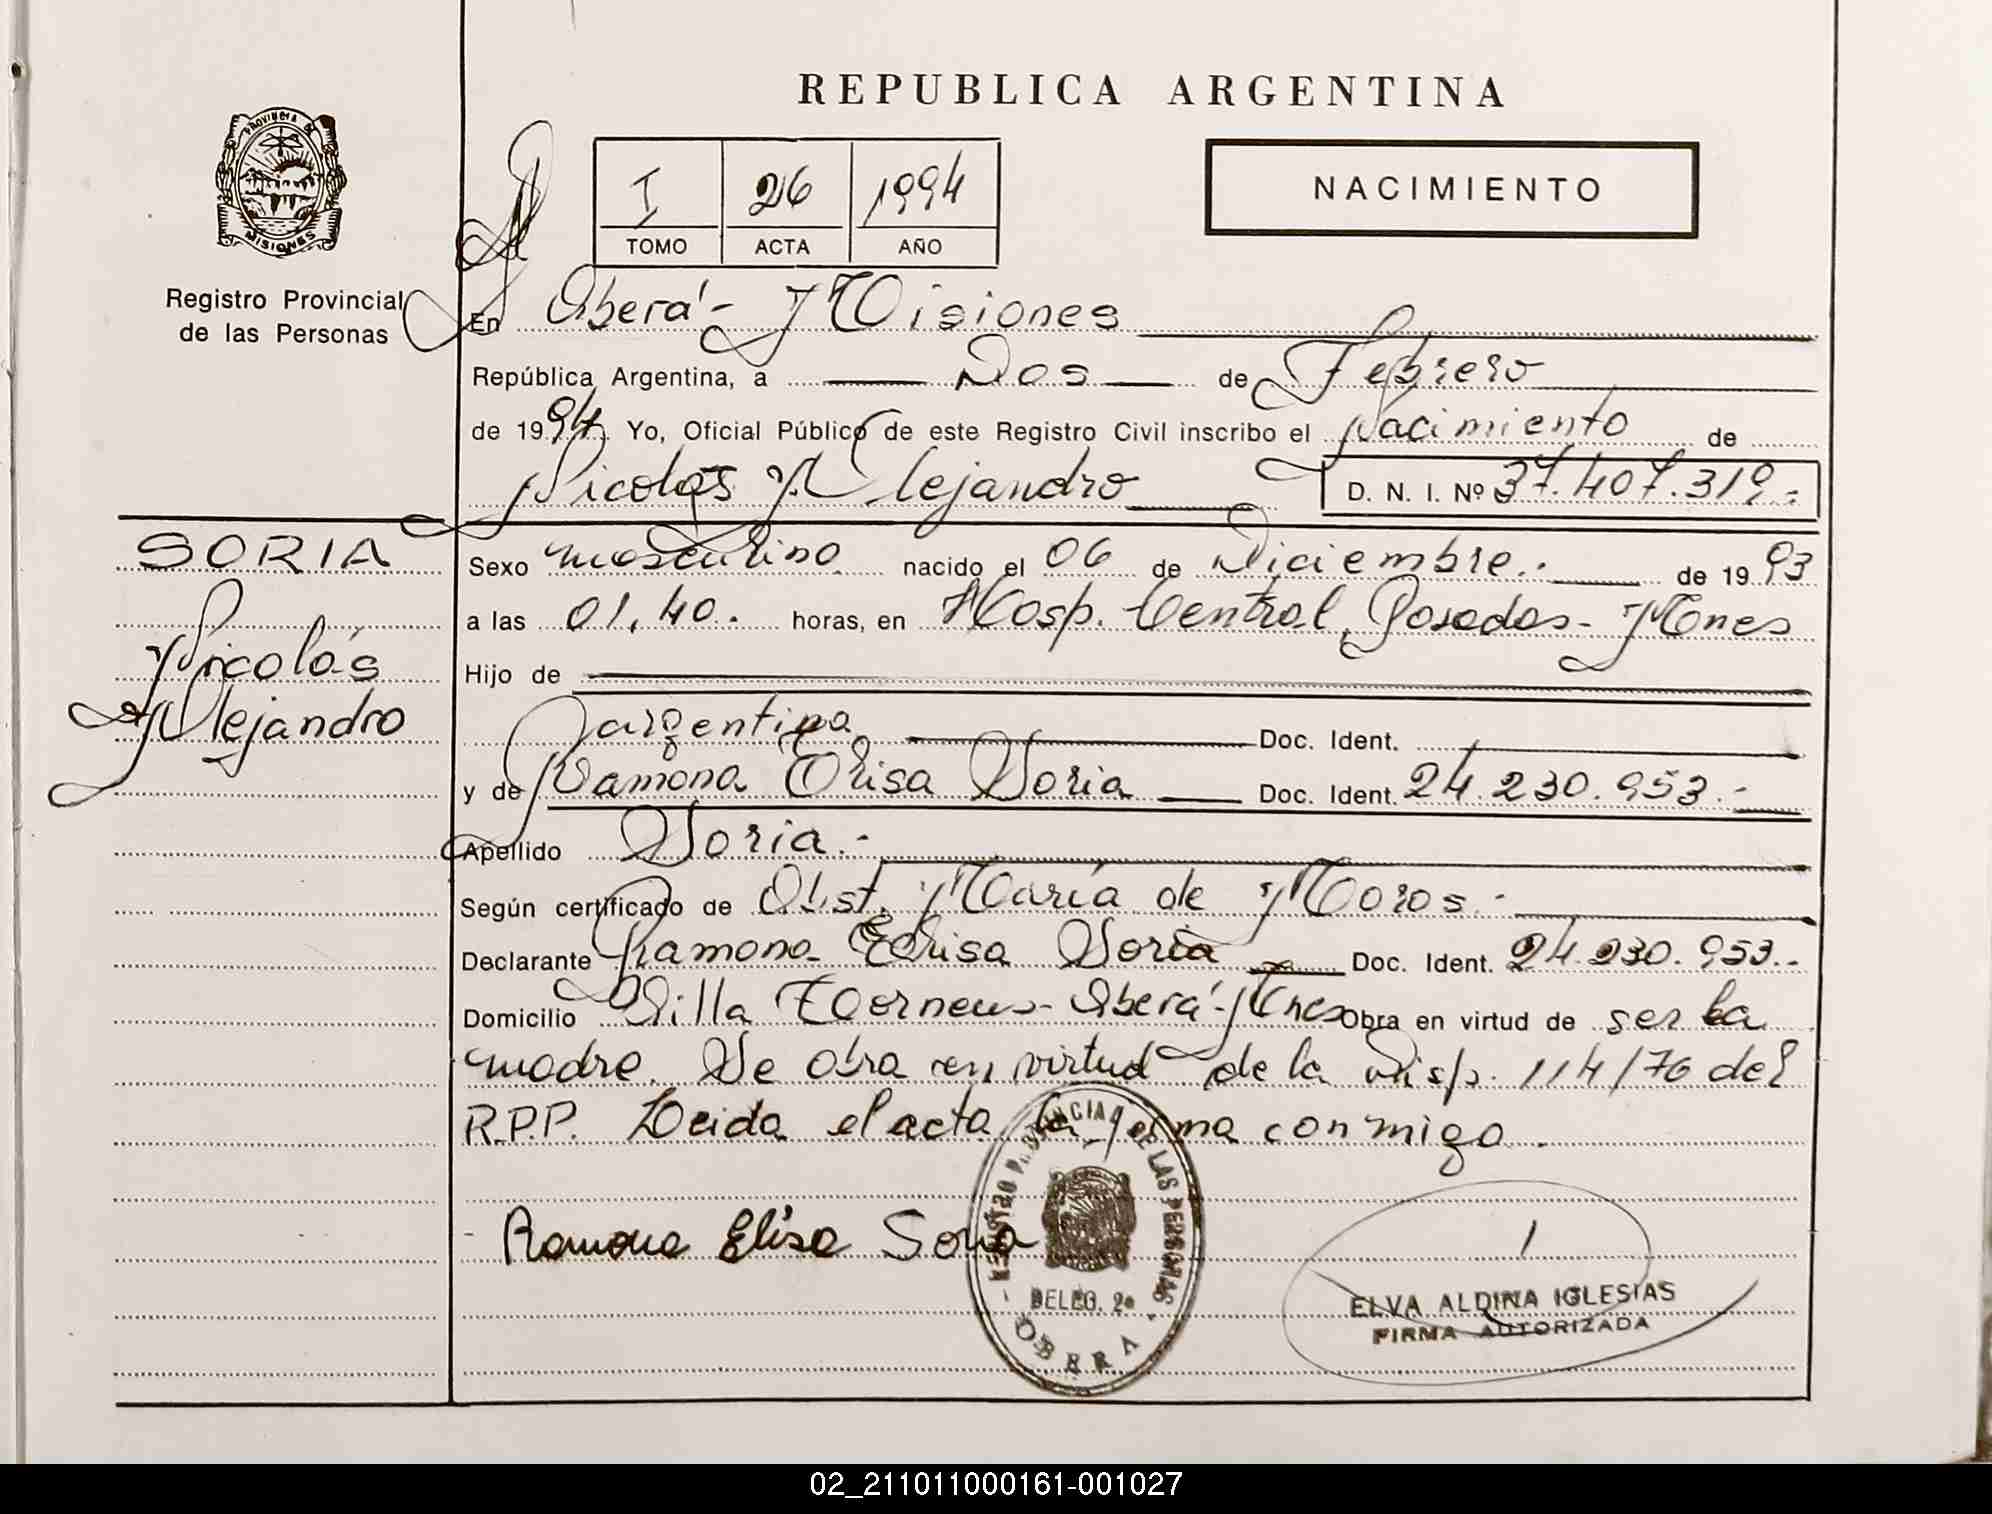 REPUBLICA ARGENTINA
PROVINCIA DE
MISIONES
Registro Provincial
de las Personas
I 26 1994
TOMO ACTA AÑO
NACIMIENTO
En Oberá - Misiones
República Argentina, a Dos de Febrero
de 1994. Yo, Oficial Público de este Registro Civil inscribo el Nacimiento de
Nicolás Alejandro D. N. I. Nº 37.407.319.-
SORIA
Nicolás
Alejandro
Sexo masculino nacido el 06 de Diciembre.- de 1993
a las 01,40. horas, en Hosp. Central, Posadas - Mnes
Hijo de
argentina Doc. Ident.
y de Ramona Elisa Soria Doc. Ident. 24.230.953.-
Apellido Soria.-
Según certificado de Obst. María de Moros.-
Declarante Ramona Elisa Soria Doc. Ident. 24.230.953.-
Domicilio Villa - Oberá - Mnes Obra en virtud de ser la
madre. Se obra en virtud de la Disp. 114/76 del
R.P.P. Leida el acta la firma conmigo.
- Ramona Elisa Soria
REGISTRO PROVINCIAL DE LAS PERSONAS
DELEG. 2ª
OBERA
ELVA ALDINA IGLESIAS
FIRMA AUTORIZADA
02_211011000161-001027